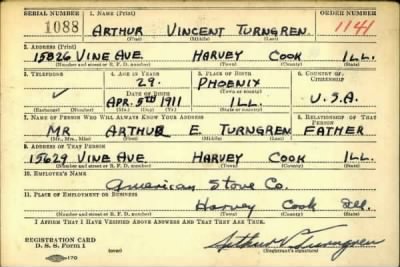 SERIAL NUMBER 1. NAME (Print) ORDER NUMBER
1088 ARTHUR VINCENT TURNGREN 1141
(First) (Middle) (Last)
2. ADDRESS (Print)
15826 VINE AVE HARVEY COOK ILL.
(Number and street or R. F. D. number) (Town) (County) (State)
3. TELEPHONE 4. AGE IN YEARS 5. PLACE OF BIRTH 6. COUNTRY OF CITIZENSHIP
29. PHOENIX
DATE OF BIRTH (Town or county)
APR. 5TH 1911 ILL. U.S.A.
(Exchange) (Number) (Mo.) (Day) (Yr.) (State or country)
7. NAME OF PERSON WHO WILL ALWAYS KNOW YOUR ADDRESS 8. RELATIONSHIP OF THAT PERSON
MR ARTHUR E. TURNGREN FATHER
(Mr., Mrs., Miss) (First) (Middle) (Last)
9. ADDRESS OF THAT PERSON
15629 VINE AVE HARVEY COOK ILL.
(Number and street or R. F. D. number) (Town) (County) (State)
10. EMPLOYER'S NAME
American Stove Co.
11. PLACE OF EMPLOYMENT OR BUSINESS
Harvey Cook Ill.
(Number and street or R. F. D. number) (Town) (County) (State)
I AFFIRM THAT I HAVE VERIFIED ABOVE ANSWERS AND THAT THEY ARE TRUE.
REGISTRATION CARD
D. S. S. Form 1 Arthur V. Turngren
170 (Registrant's signature)